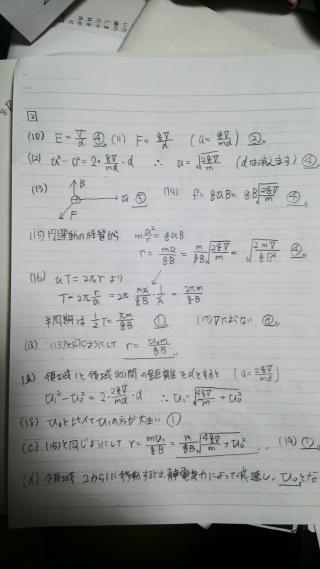 [3]
(10) E = V/d ④, (11) F = qV/d (a = qV/md) ②,
(12) u² - 0² = 2・qV/md・d ∴ u = √(2qV/m) (dは消えます) ④,
(13) B u F ⑤ (14) f = quB = qB√(2qV/m) ④,
(15) 円運動の経質から m u²/r = quB
r = mu/qB = m/qB √(2qV/m) = √(2mV/qB²) ④,
(16) uT = 2πr より
T = 2π r/u = 2π mu/qB・1/u = 2πm/qB
半周期は 1/2 T = πm/qB ①, (17) Vによらない
(a) (15)と同じようにして r = u₀m/qB
領域1と領域2の間の距離をdとすると (a = 2qV/md)
u₁² - u₀² = 2・2qV/md・d ∴ u₁ = √(4qV/m + u₀²)
(18) u₀と比べてu₁の方が大きい ①
(c) (15)と同じようにして r = mu₁/qB = m/qB √(4qV/m + u₀²), (19) ①,
(d) 領域2から1に移動するとき、静電気力によって減速し、u₀とな